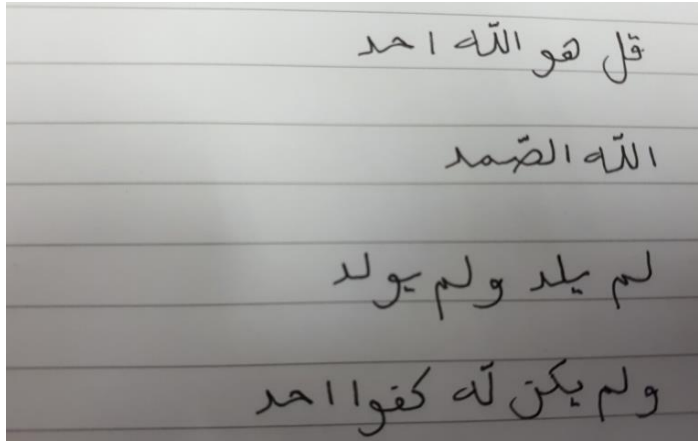 قل هو اللّه احد
اللّه الصّمد
لم يلد ولم يولد
ولم يكن لّه كفوا احد